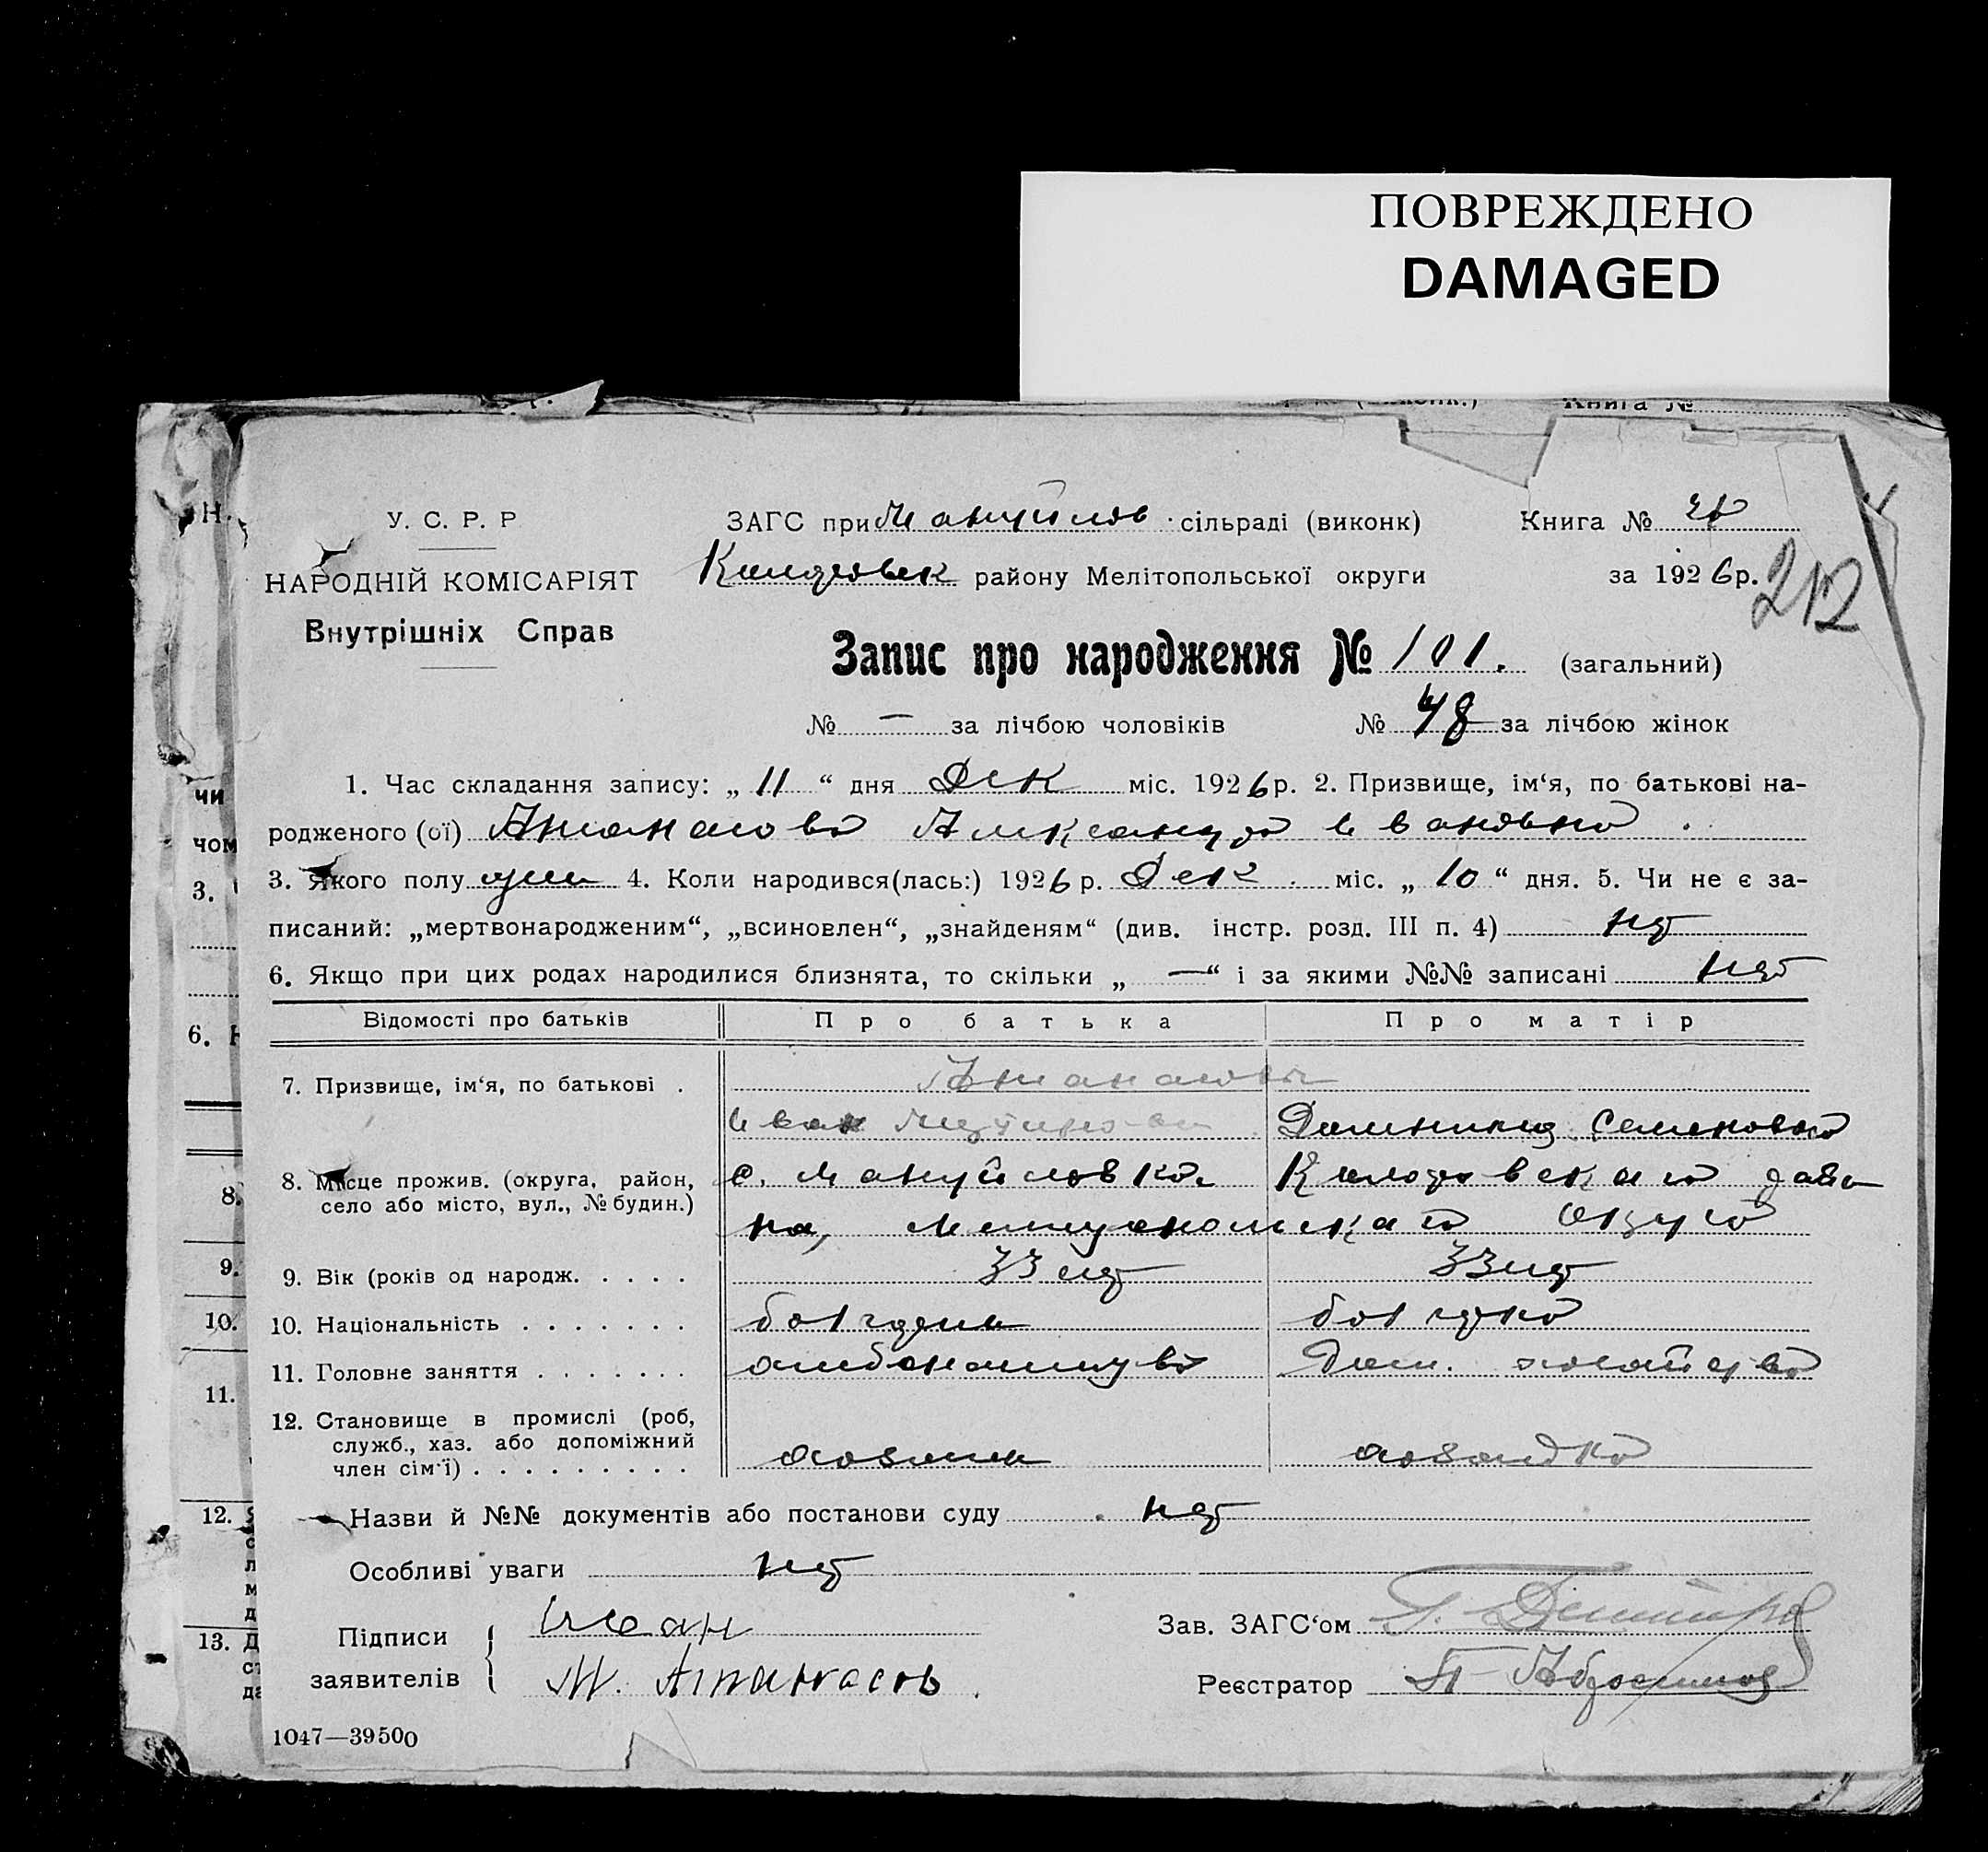 ПОВРЕЖДЕНО
DAMAGED
Книга №
У. С. Р. Р
НАРОДНІЙ КОМІСАРІЯТ
Внутрішніх Справ
ЗАГС при Мануйлов сільраді (виконк)
Книга №
району Мелітопольської округи
за 1926 р.
212
Запис про народження № 101. (загальний)
№ — за лічбою чоловіків № 48 за лічбою жінок
1. Час складання запису: „ 11 “ дня Дек міс. 1926 р. 2. Призвище, ім‘я, по батькові на-
родженого (ої) Атанасова Александра Ивановна.
3. Якого полу 4. Коли народився(лась:) 1926 р. Дек. міс. „ 10 “ дня. 5. Чи не є за-
писаний: „мертвонародженим“, „всиновлен“, „знайденям“ (див. інстр. розд. III п. 4) нет
6. Якщо при цих родах народилися близнята, то скільки „ — “ і за якими №№ записані нет
Відомості про батьків Про батька Про матір
7. Призвище, ім‘я, по батькові . Атанасовы
Иван Семеновна
8. Місце прожив. (округа, район, село або місто, вул., № будин.) с. Мануйловка
на, Мелитопольскаго Округа
9. Вік (років од народж. . . . . 33 лет 33 лет
10. Національність . . . . . . . болгарин болгарка
11. Головне заняття . . . . . . . хлебопашество Дом. хозяйство
12. Становище в промислі (роб, служб., хаз. або допоміжний член сім‘ї) . . . . . . . . . хозяин хозяйка
Назви й №№ документів або постанови суду нет
Особливі уваги нет
Підписи заявителів { Иван
М. Атанасовъ.
Зав. ЗАГС‘ом
Реєстратор
1047—39500